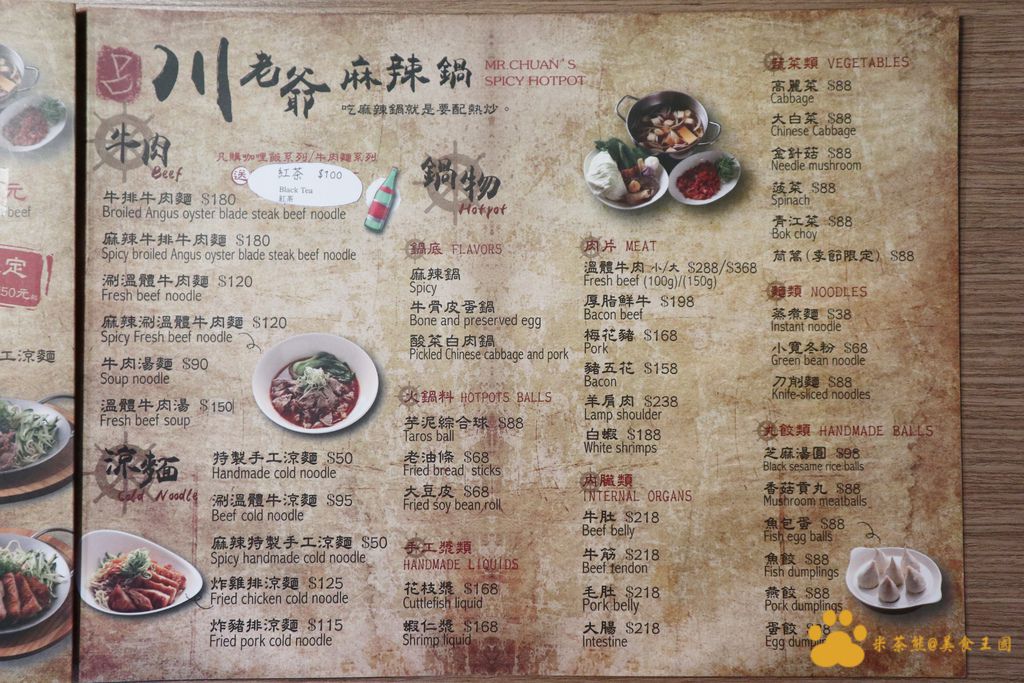 元
beef
定
50元起
工涼麵
川老爺麻辣鍋
MR.CHUAN'S
SPICY HOTPOT
吃麻辣鍋就是要配熱炒。
牛肉
Beef
凡購咖哩飯系列/牛肉麵系列
送
紅茶 $100
Black Tea
紅茶
牛排牛肉麵 $180
Broiled Angus oyster blade steak beef noodle
麻辣牛排牛肉麵 $180
Spicy broiled Angus oyster blade steak beef noodle
涮溫體牛肉麵 $120
Fresh beef noodle
麻辣涮溫體牛肉麵 $120
Spicy Fresh beef noodle
牛肉湯麵 $90
Soup noodle
溫體牛肉湯 $150
Fresh beef soup
涼麵
Cold Noodle
特製手工涼麵 $50
Handmade cold noodle
涮溫體牛涼麵 $95
Beef cold noodle
麻辣特製手工涼麵 $50
Spicy handmade cold noodle
炸雞排涼麵 $125
Fried chicken cold noodle
炸豬排涼麵 $115
Fried pork cold noodle
鍋物
Hotpot
鍋底 FLAVORS
麻辣鍋
Spicy
牛骨皮蛋鍋
Bone and preserved egg
酸菜白肉鍋
Pickled Chinese cabbage and pork
火鍋料 HOTPOTS BALLS
芋泥綜合球 $88
Taros ball
老油條 $68
Fried bread sticks
大豆皮 $68
Fried soy bean roll
手工漿類
HANDMADE LIQUIDS
花枝漿 $168
Cuttlefish liquid
蝦仁漿 $168
Shrimp liquid
肉片 MEAT
溫體牛肉 小/大 $288/$368
Fresh beef (100g)/(150g)
厚脂鮮牛 $198
Bacon beef
梅花豬 $168
Pork
豬五花 $158
Bacon
羊肩肉 $238
Lamp shoulder
白蝦 $188
White shrimps
內臟類
INTERNAL ORGANS
牛肚 $218
Beef belly
牛筋 $218
Beef tendon
毛肚 $218
Pork belly
大腸 $218
Intestine
蔬菜類 VEGETABLES
高麗菜 $88
Cabbage
大白菜 $88
Chinese Cabbage
金針菇 $88
Needle mushroom
菠菜 $88
Spinach
青江菜 $88
Bok choy
茼萵(季節限定) $88
麵類 NOODLES
蒸煮麵 $38
Instant noodle
小寬冬粉 $68
Green bean noodle
刀削麵 $88
Knife-sliced noodles
丸餃類 HANDMADE BALLS
芝麻湯圓 $98
Black sesame rice balls
香菇貢丸 $88
Mushroom meatballs
魚包蛋 $88
Fish egg balls
魚餃 $88
Fish dumplings
燕餃 $88
Pork dumplings
蛋餃
Egg dumplings
米茶熊@美食王國